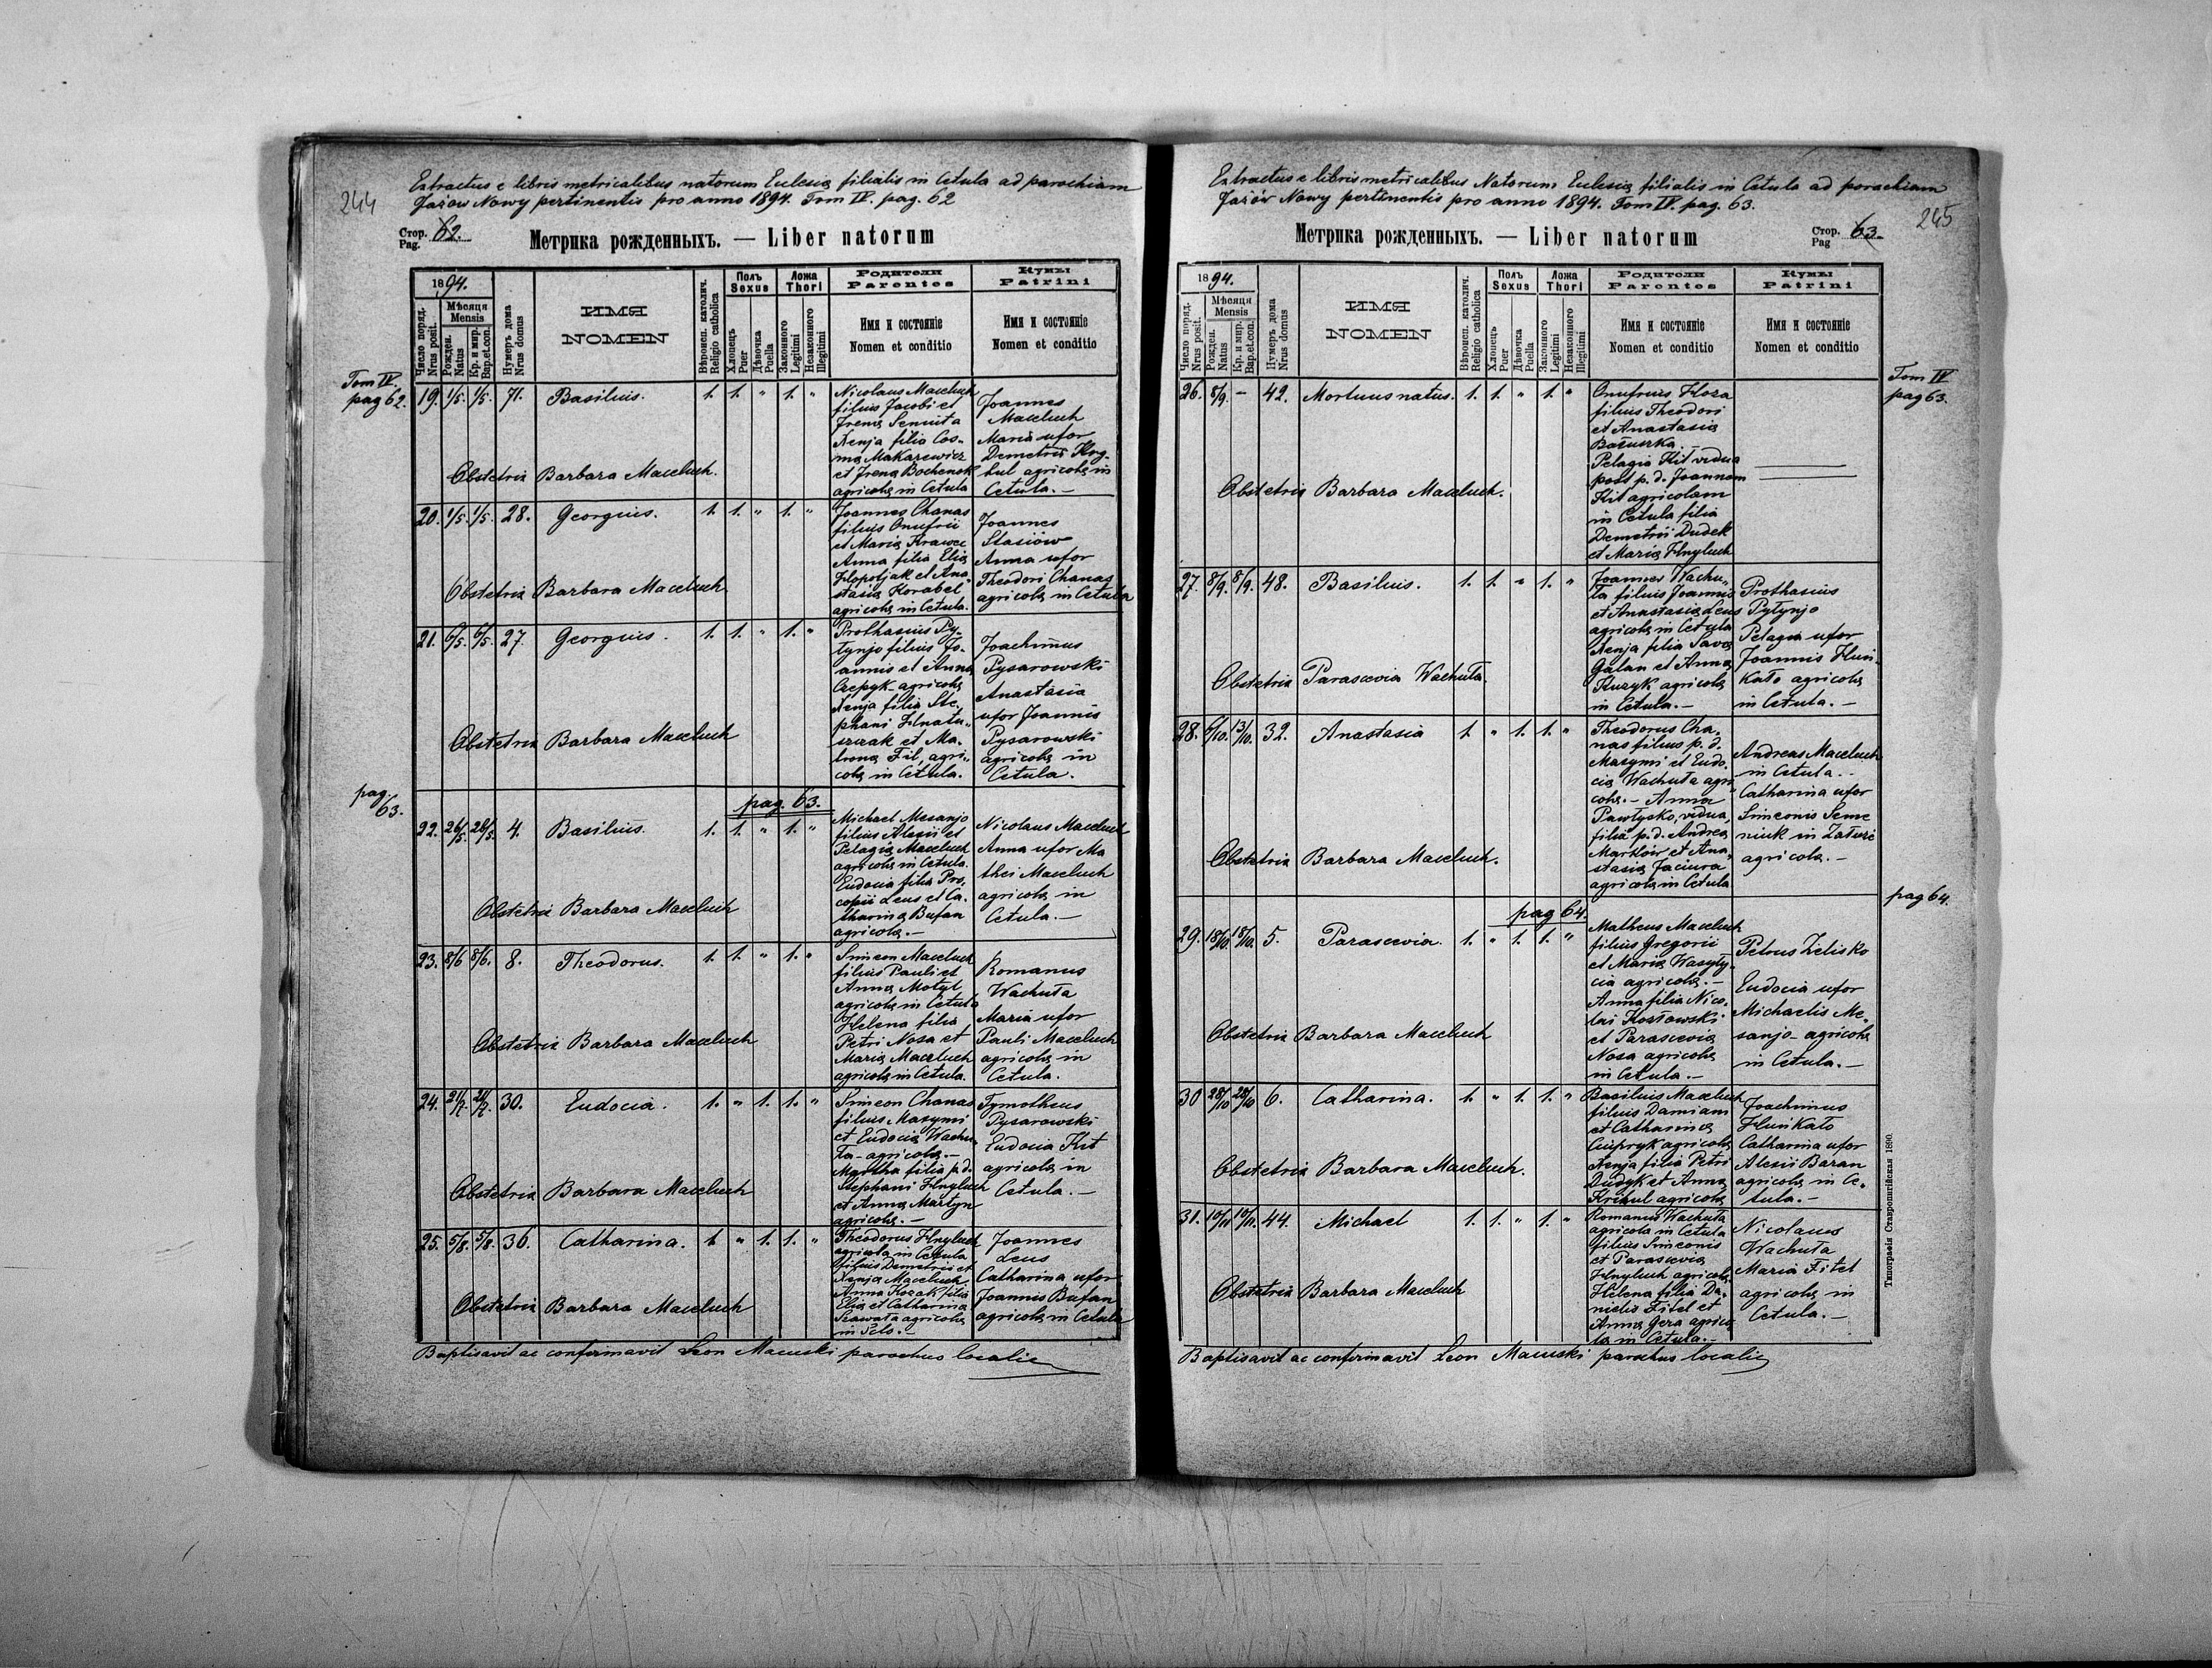 244
Extractus e libris metricalibus natorum Ecclesiæ filialis in Cetula ad parochiam
Jażow Nowy pertinentis pro anno 1894. Tom IV. pag. 62
Стор. Pag. 62.
Метрика рожденныхъ. — Liber natorum
1894.
Число поряд. Nrus posit.
Мѣсяця Mensis
Рожден. Natus
Кр. и мир. Bap. et con.
Нумеръ дома Nrus domus
ИМЯ
NOMEN
Вѣроисп. католич. Religio catholica
Полъ Sexus
Хлопецъ Puer
Дѣвочка Puella
Ложа Thori
Законного Legitimi
Незаконного Illegitimi
Родители Parentes
Имя и состояніе
Nomen et conditio
Кумы Patrini
Имя и состояніе
Nomen et conditio
Tom IV.
pag 62.
19. 1/5. 1/5. 71. Basilius. 1. 1. " 1. "
Nicolaus Maceluch
filius Jacobi et
Irenæ Seniuta
Xenja filia Cos-
mæ Makarewicz
et Irenæ Bochenok
agricolæ in Cetula
Joannes
Maceluch
Maria uxor
Demetrii
agricolæ in
Cetula. —
Obstetrix Barbara Maceluch.
20. 1/5. 1/5. 28. Georgius. 1. 1. " 1. "
Joannes Chanas
filius Onufrii
et Mariæ Krawec
Anna filia Eliæ
Hlopotjak et Ana-
stasiæ Korabel
agricolæ in Cetula.
Joannes
Stasiów
Anna uxor
Theodori Chanas
agricolæ in Cetula
Obstetrix Barbara Maceluch.
21. 6/5. 6/5. 27. Georgius. 1. 1. " 1. "
Prothasius Py-
tynjo filius Jo-
annis et Annæ
Czepyk - agricolæ
Xenja filia Ste-
phani Hnatu-
szczak et Ma-
tronæ Fil, agri-
colæ in Cetula.
Joachimus
Pysarowski
Anastasia
uxor Joannis
Pysarowski
agricolæ in
Cetula.
Obstetrix Barbara Maceluch
pag.
63.
pag. 63.
22. 26/5. 26/5. 4. Basilius. 1. 1. " 1. "
Michael Mesanjo
filius Alexii et
Pelagiæ Maceluch
agricolæ in Cetula.
Eudocia filia Pro-
copii Leus et Ca-
tharinæ Bufan
agricolæ. —
Nicolaus Maceluch
Anna uxor Ma
thei Maceluch
agricolæ in
Cetula. —
Obstetrix Barbara Maceluch
23. 8/6 8/6. 8. Theodorus. 1. 1. " 1. "
Simeon Maceluch
filius Pauli et
Annæ Motyl
agricolæ in Cetula
Helena filia
Petri Nosa et
Mariæ Maceluch
agricolæ in Cetula.
Romanus
Wachuta
Maria uxor
Pauli Maceluch
agricolæ in
Cetula.
Obstetrix Barbara Maceluch
24. 30. Eudocia. 1. " 1. 1. "
Simeon Chanas
filius Maxymi
et Eudociæ Wachu-
ta - agricolæ. —
Martha filia p.d.
Stephani Hnyluch
et Annæ Martyn
agricolæ. —
Tymotheus
Pysarowski
Eudocia Kit
agricolæ in
Cetula. —
Obstetrix Barbara Maceluch
25. 5/8. 5/8. 36. Catharina. 1. " 1. 1. "
Theodorus Hnyluch
agricola in Cetula
filius Demetrii et
Xenjæ Maceluch
Anna Kozak filia
Eliæ et Catharinæ
agricolæ
Joannes
Leus
Catharina uxor
Joannis Bufan
agricolæ in Cetula
Obstetrix Barbara Maceluch
Baptisavit ac confirmavit Leon Macuski parochus localis
Extractus e libris metricalibus Natorum Ecclesiæ filialis in Cetula ad parochiam
Jażów Nowy pertinentis pro anno 1894. Tom IV. pag. 63.
245
Стор. Pag 63.
Метрика рожденныхъ. — Liber natorum
1894.
Число поряд. Nrus posit.
Мѣсяця Mensis
Рожден. Natus
Кр. и мир. Bap. et con.
Нумеръ дома Nrus domus
ИМЯ
NOMEN
Вѣроисп. католич. Religio catholica
Полъ Sexus
Хлопецъ Puer
Дѣвочка Puella
Ложа Thori
Законного Legitimi
Незаконного Illegitimi
Родители Parentes
Имя и состояніе
Nomen et conditio
Кумы Patrini
Имя и состояніе
Nomen et conditio
Tom IV
pag 63.
26. 8/9. — 42. Mortuus natus. 1. 1. " 1. "
Onufrius Hoza
filius Theodori
et Anastasiæ
Bażuszka. —
Pelagia Kit vidua
post p. d. Joannem
Kit agricolam
in Cetula filia
Demetrii Dudek
et Mariæ Hnyluch
Obstetrix Barbara Maceluch.
27. 8/9. 8/9. 48. Basilius. 1. 1. " 1. "
Joannes Wachu-
ta filius Joannis
et Anastasiæ Leus
agricolæ in Cetula
Xenja filia Savæ
Galan et Annæ
Kuzyk agricolæ
in Cetula. —
Prothasius
Pytynjo
Pelagia uxor
Joannis Huń-
kało agricolæ
in Cetula. —
Obstetrix Parascevia Wachuta.
28. 6/10. 13/10. 32. Anastasia 1. " 1. 1. "
Theodorus Cha-
nas filius p. d.
Maxymi et Eudo-
ciæ Wachuta agri-
colæ. — Anna
Pawłysko, vidua,
filia p. d. Andreæ
Marków et Ana-
stasiæ Jaciura
agricolæ in Cetula
Andreas Maceluch
in Cetula. —
Catharina uxor
Simeonis Seme
niuk in Załuże
agricolæ. —
Obstetrix Barbara Maceluch.
pag 64.
pag 64.
29. 18/10. 18/10. 5. Parascevia. 1. " 1. 1. "
Matheus Maceluch
filius Gregorii
et Mariæ Wasyły-
cia agricolæ. —
Anna filia Nico-
lai Kozłowski
et Parasceviæ
Nosa agricolæ
in Cetula. —
Petrus Zelisko
Eudocia uxor
Michaelis Me-
sanjo - agricolæ
in Cetula. —
Obstetrix Barbara Maceluch
30 28/10 28/10 6. Catharina. 1. " 1. 1. "
Basilius Maceluch
filius Damiani
et Catharinæ
Ciupryk agricolæ
Xenja filia Petri
Dudyk et Annæ
agricolæ
Joachimus
Huńkało
Catharina uxor
Alexii Baran
agricolæ in Ce-
tula. —
Obstetrix Barbara Maceluch.
31. 19/11 19/11. 44. Michael 1. 1. " 1. "
Romanus Wachuta
agricola in Cetula
filius Simeonis
et Parasceviæ
Hnyluch agricolæ
Helena filia Da-
nielis Fitel et
Annæ Gera agrico-
læ in Cetula. —
Nicolaus
Wachuta
Maria Fitel
agricolæ in
Cetula. —
Obstetrix Barbara Maceluch
Типографія Ставропигійская 1890.
Baptisavit ac confirmavit Leon Macuski parochus localis